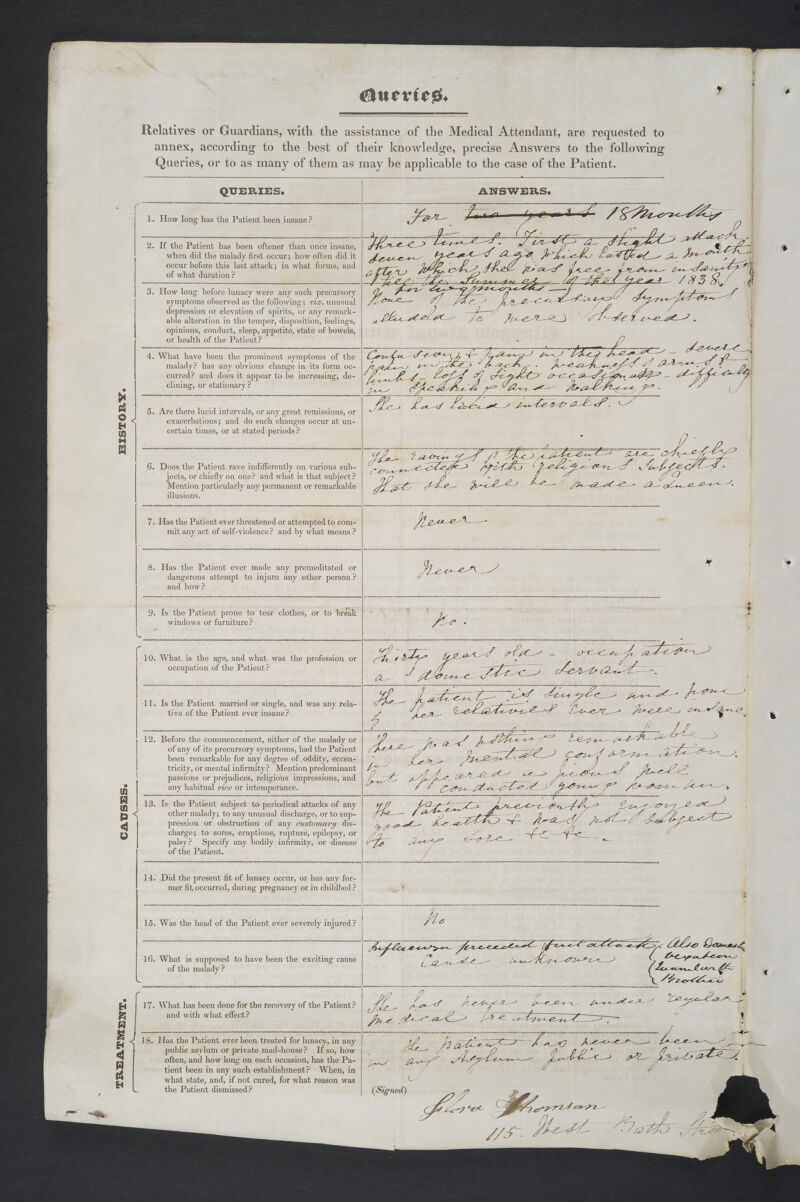 Queries.
Relatives or Guardians, with the assistance of the Medical Attendant, are requested to
annex, according to the best of their knowledge, precise Answers to the following
Queries, or to as many of them as may be applicable to the case of the Patient.
QUERIES.
ANSWERS.
HISTORY.
1. How long has the Patient been insane?
For two years 18 Months
2. If the Patient has been oftener than once insane,
when did the malady first occur; how often did it
occur before this last attack; in what forms, and
of what duration?
Three times. First a slight attack
seven years ago which lasted a month
after which she was free from insanity
till the Summer of the year 1838.
for months
3. How long before lunacy were any such precursory
symptoms observed as the following; viz. unusual
depression or elevation of spirits, or any remark-
able alteration in the temper, disposition, feelings,
opinions, conduct, sleep, appetite, state of bowels,
or health of the Patient?
None of the precursory symptoms
alluded to were observed.
4. What have been the prominent symptoms of the
malady? has any obvious change in its form oc-
curred? and does it appear to be increasing, de-
clining, or stationary?
Confusion & pain in the head - severe
pain in the back. weakness of arms &
limbs loss of sight occasionally - difficulty
in speaking and walking.
5. Are there lucid intervals, or any great remissions, or
exacerbations; and do such changes occur at un-
certain times, or at stated periods?
She has lucid intervals.
6. Does the Patient rave indifferently on various sub-
jects, or chiefly on one? and what is that subject?
Mention particularly any permanent or remarkable
illusions.
The ravings of the patient are chiefly
connected with religious subjects.
That she will be made a Queen.
7. Has the Patient ever threatened or attempted to com-
mit any act of self-violence? and by what means?
Never
8. Has the Patient ever made any premeditated or
dangerous attempt to injure any other person?
and how?
Never
9. Is the Patient prone to tear clothes, or to break
windows or furniture?
No.
CAUSES.
10. What is the age, and what was the profession or
occupation of the Patient?
Thirty years old - occupation
a domestic Servant.
11. Is the Patient married or single, and was any rela-
tive of the Patient ever insane?
The patient is single and none
of her relatives ever were insane.
12. Before the commencement, either of the malady or
of any of its precursory symptoms, had the Patient
been remarkable for any degree of oddity, eccen-
tricity, or mental infirmity? Mention predominant
passions or prejudices, religious impressions, and
any habitual vice or intemperance.
There was nothing remarkable
in her mental conformation.
but appeared a pious well
conducted young woman.
13. Is the Patient subject to periodical attacks of any
other malady; to any unusual discharge, or to sup-
pression or obstruction of any customary dis-
charge; to sores, eruptions, rupture, epilepsy, or
palsy? Specify any bodily infirmity, or disease
of the Patient.
The Patient previously enjoyed
good health & was not subject
to any sore &c &c.
14. Did the present fit of lunacy occur, or has any for-
mer fit occurred, during pregnancy or in childbed?
15. Was the head of the Patient ever severely injured?
No
16. What is supposed to have been the exciting cause
of the malady?
Influenza preceded first attack. Also Domestic
Cause unknown
vexation
Quarrel with
Brother
TREATMENT.
17. What has been done for the recovery of the Patient?
and with what effect?
She has never been under regular
medical treatment.
18. Has the Patient ever been treated for lunacy, in any
public asylum or private mad-house? If so, how
often, and how long on each occasion, has the Pa-
tient been in any such establishment? When, in
what state, and, if not cured, for what reason was
the Patient dismissed?
The Patient has never been
in any Asylum public or private.
(Signed)
Flora Thomson
115. West Bath Street